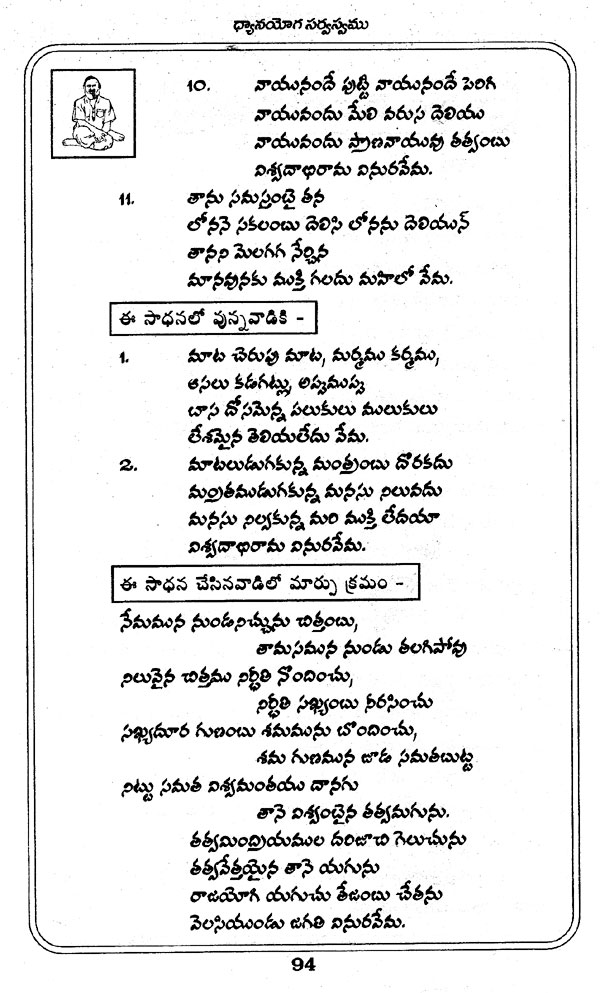 ధ్యానయోగ సర్వస్వము
10. వాయునందే పుట్టి వాయునందే పెరిగి
వాయువందు మేలి వరుస దెలియు
వాయువందు ప్రాణవాయువు తత్వంబు
విశ్వదాభిరామ వినురవేమ.
11. తాను సమస్తంబై తన
లోననె సకలంబు దెలిసి లోనను దెలియున్
తానని మెలగగ నేర్చిన
మానవునకు ముక్తి గలదు మహిలో వేమ.
ఈ సాధనలో వున్నవాడికి -
1. మాట చెరుపు మాట, మర్మము కర్మము,
ఆసలు కడగట్లు, అప్పముప్ప
బాస దోసమెన్న పలుకులు ములుకులు
లేశమైన తెలియలేదు వేమ.
2. మాటలుడుగకున్న మంత్రంబు దొరకదు
మంత్రతముడుగకున్న మనసు నిలువదు
మనసు నిల్వకున్న మరి ముక్తి లేదయా
విశ్వదాభిరామ వినురవేమ.
ఈ సాధన చేసినవాడిలో మార్పు క్రమం -
నేమమున నుండనిచ్చును చిత్తంబు,
తామసమున నుండు తలగిపోవు
నిలువైన చిత్తము నిర్ధీతి నొందించు,
నిర్ధీతి సఖ్యంబు నీరసించు
సఖ్యదూర గుణంబు శమమును బొందించు,
శమ గుణమున జూడ సమతబుట్ట
నిట్టు సమత విశ్వమంతయు దానగు
తానె విశ్వంబైన తత్వమగును.
తత్వమింద్రియముల దరిజూచి గెలుచును
తత్వవేత్తయైన తానె యగును
రాజయోగి యగుచు తేజంబు చేతను
వెలసియుండు జగతి వినురవేమ.
94